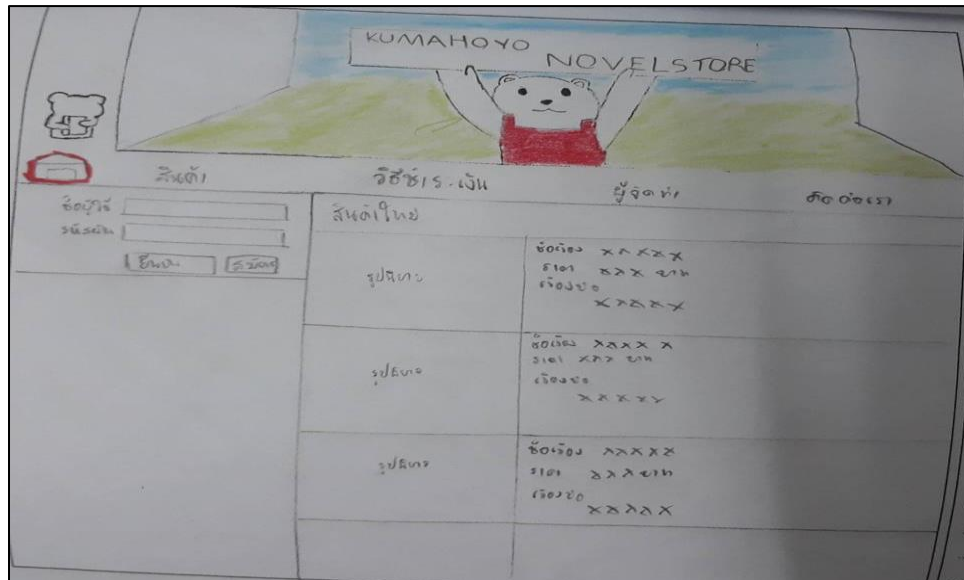 KUMAHOYO
NOVELSTORE
สินค้า วิธีชำระเงิน ผู้จัดทำ ติดต่อเรา
ชื่อผู้ใช้
รหัสผ่าน
ยืนยัน สมัคร
สินค้าใหม่
รูปนิยาย
ชื่อเรื่อง xxxxx
ราคา xxx บาท
เรื่องย่อ
xxxxx
รูปนิยาย
ชื่อเรื่อง xxxxx
ราคา xxx บาท
เรื่องย่อ
xxxxx
รูปนิยาย
ชื่อเรื่อง xxxxx
ราคา xxx บาท
เรื่องย่อ
xxxxx